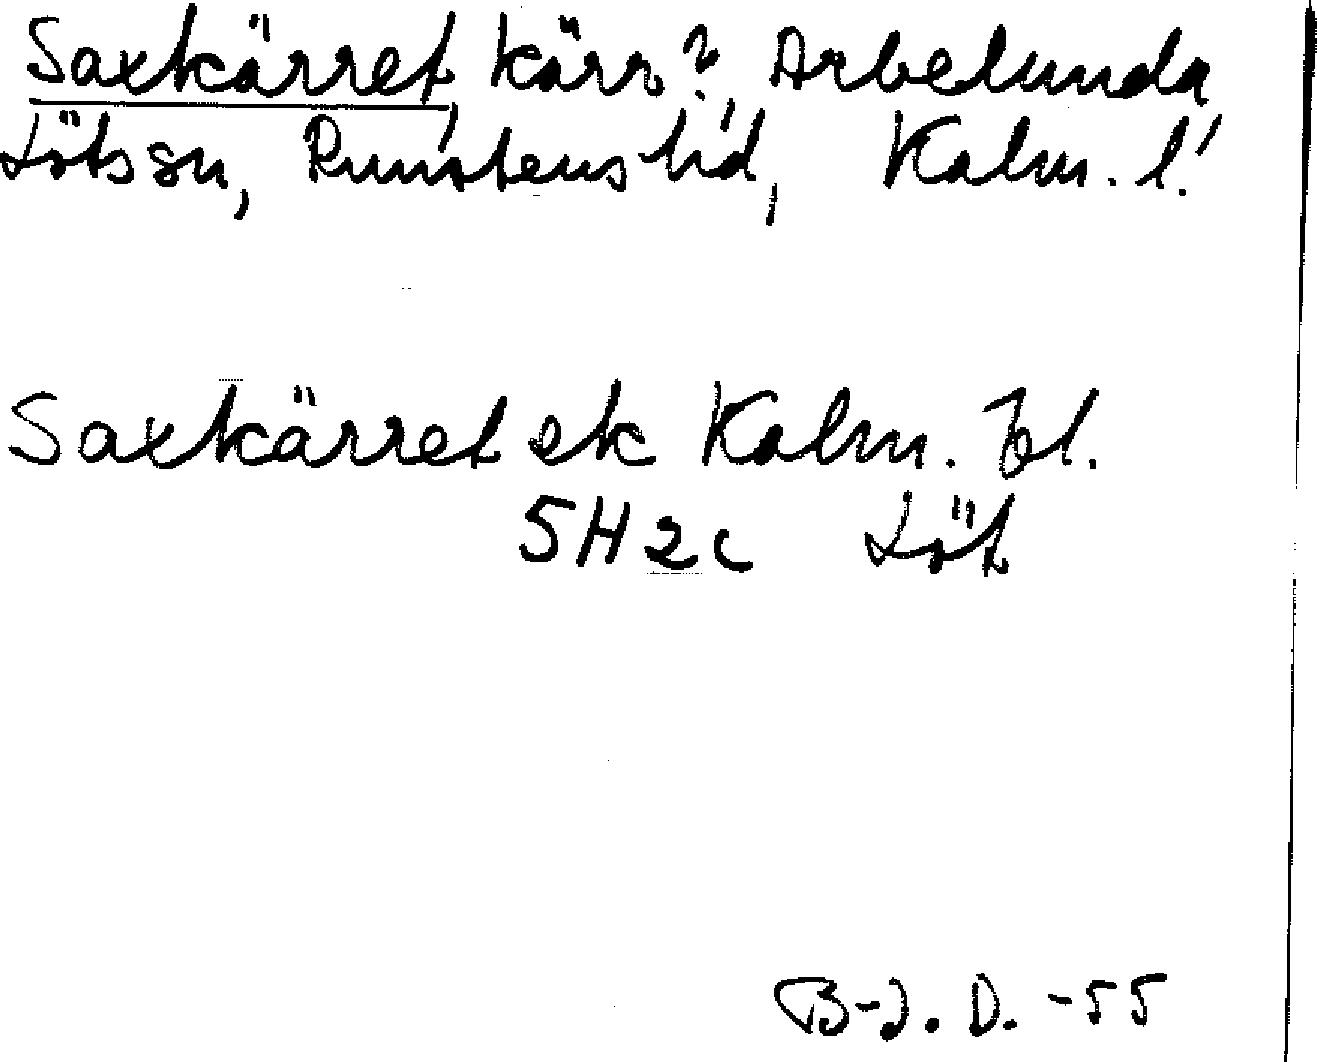 Saxkärret, kärr?, Arbelunda,
Löts sn, Runstens hd, Kalm. l.
Saxkärret ek Kalm. bl.
5H2c Löt
B-J. D. -55